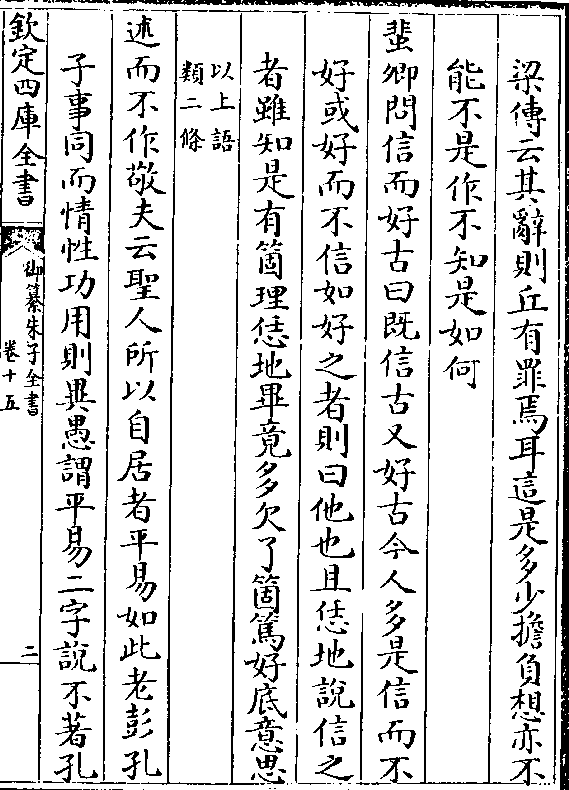 梁傳云其辭則丘有罪焉耳這是多少擔負想亦不
能不是作不知是如何
蜚卿問信而好古曰既信古又好古今人多是信而不
好或好而不信如好之者則曰他也且恁地說信之
者雖知是有箇理恁地畢竟多欠了箇篤好底意思
以上語
類二條
述而不作敬夫云聖人所以自居者平易如此老彭孔
子事同而情性功用則異愚謂平易二字說不著孔
欽定四庫全書
御纂朱子全書
卷十五
二